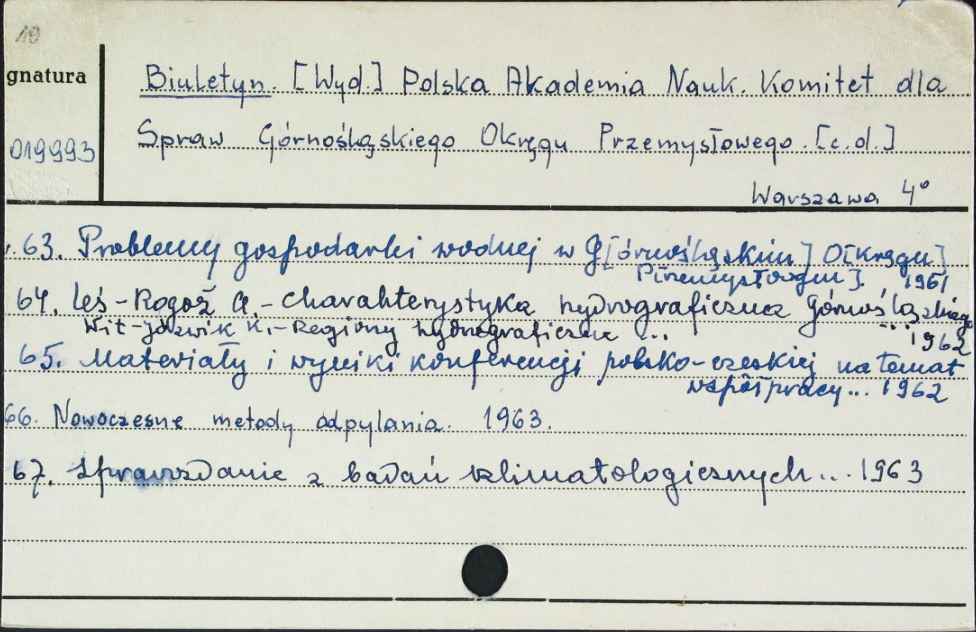 19
gnatura
019993
Biuletyn. [Wyd.] Polska Akademia Nauk. Komitet dla
Spraw Górnośląskiego Okręgu Przemysłowego. [c.d.]
Warszawa 4°
63. Problemy gospodarki wodnej w G[órnośląskim] O[kręgu]
P[rzemysłowym]. 1961
64. Leś-Rogoż A. - Charakterystyka hydrograficzna Górnośląskiego
... 1962
Wit-Jóźwik K. - Regiony hydrograficzne ...
65. Materiały i wyniki konferencji polsko-czeskiej na temat
współpracy... 1962
66. Nowoczesne metody odpylania. 1963.
67. Sprawozdanie z badań klimatologicznych... 1963